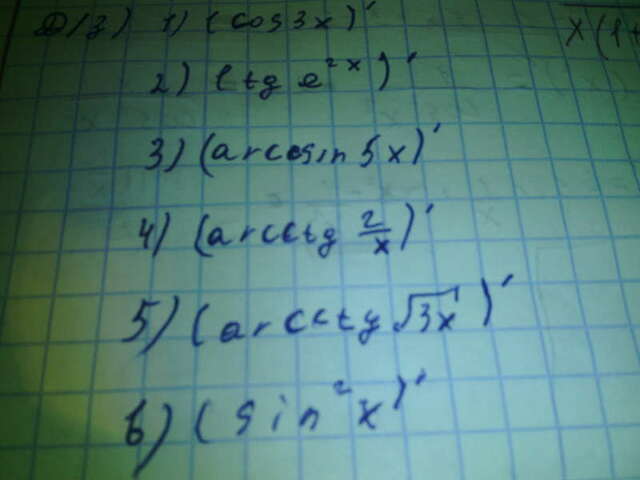 Д/з) 1) (cos 3x)′
x(1+
2) (tg e²ˣ)′
3) (arccosin 5x)′
4) (arcctg 2/x)′
5) (arcctg √3x)′
6) (sin²x)′